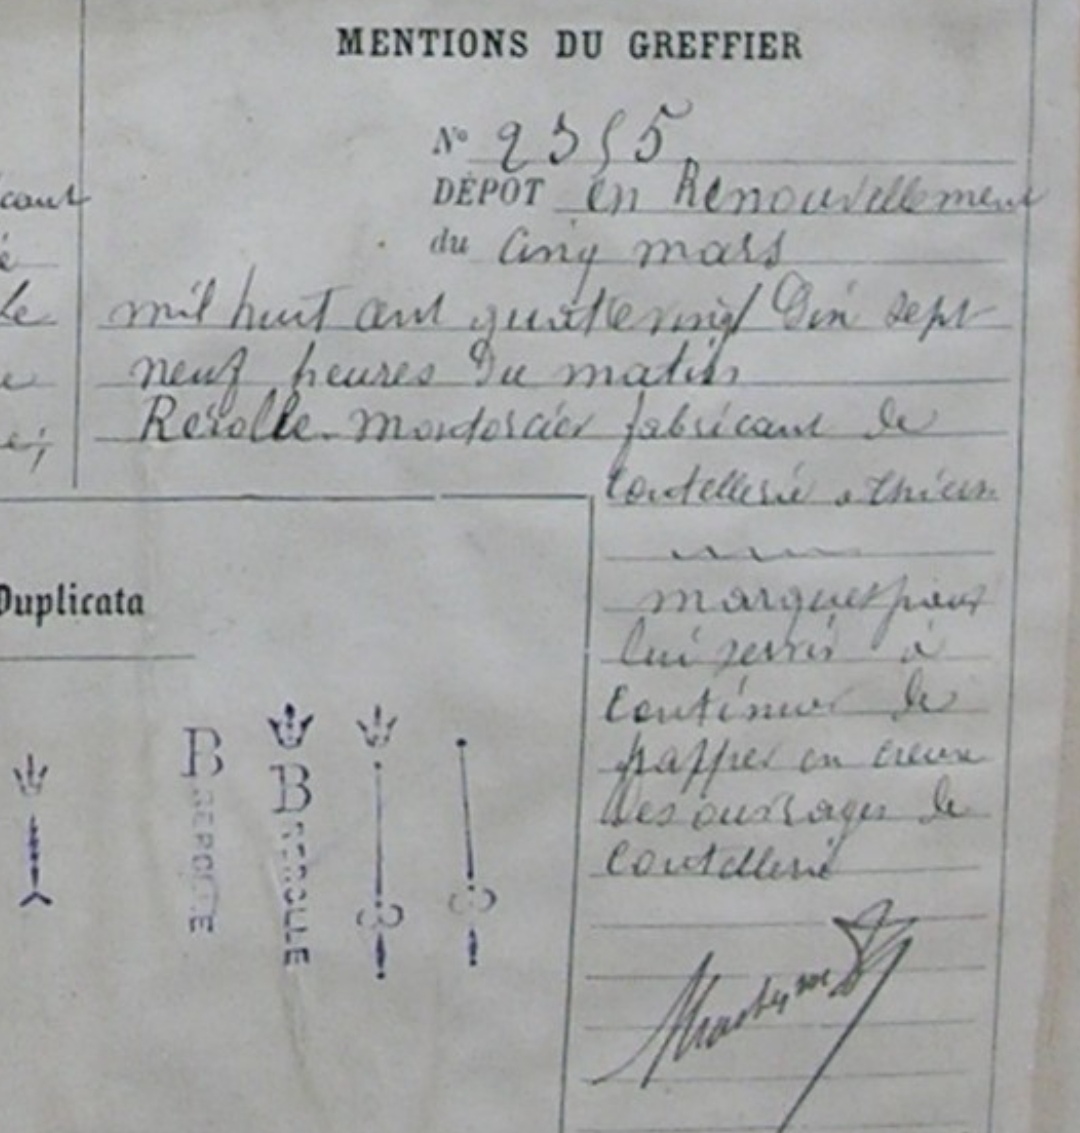 MENTIONS DU GREFFIER
N° 2355
DÉPOT en Renouvellement
du cinq mars
mil huit cent quatrevingt Dix sept
neuf heures Du matin
Rérolle-Montorcier fabricant de
coutellerie a thiers
marques pour
lui servir à
continuer de
frapper en creux
des ouvrages de
coutellerie
cant
é
le
e
e;
Duplicata
B
B REROLLE